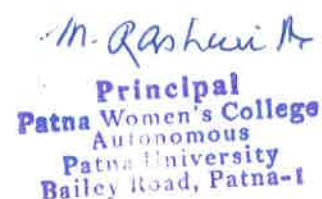 M. Rashmi A
Principal
Patna Women's College
Autonomous
Patna University
Bailey Road, Patna-1